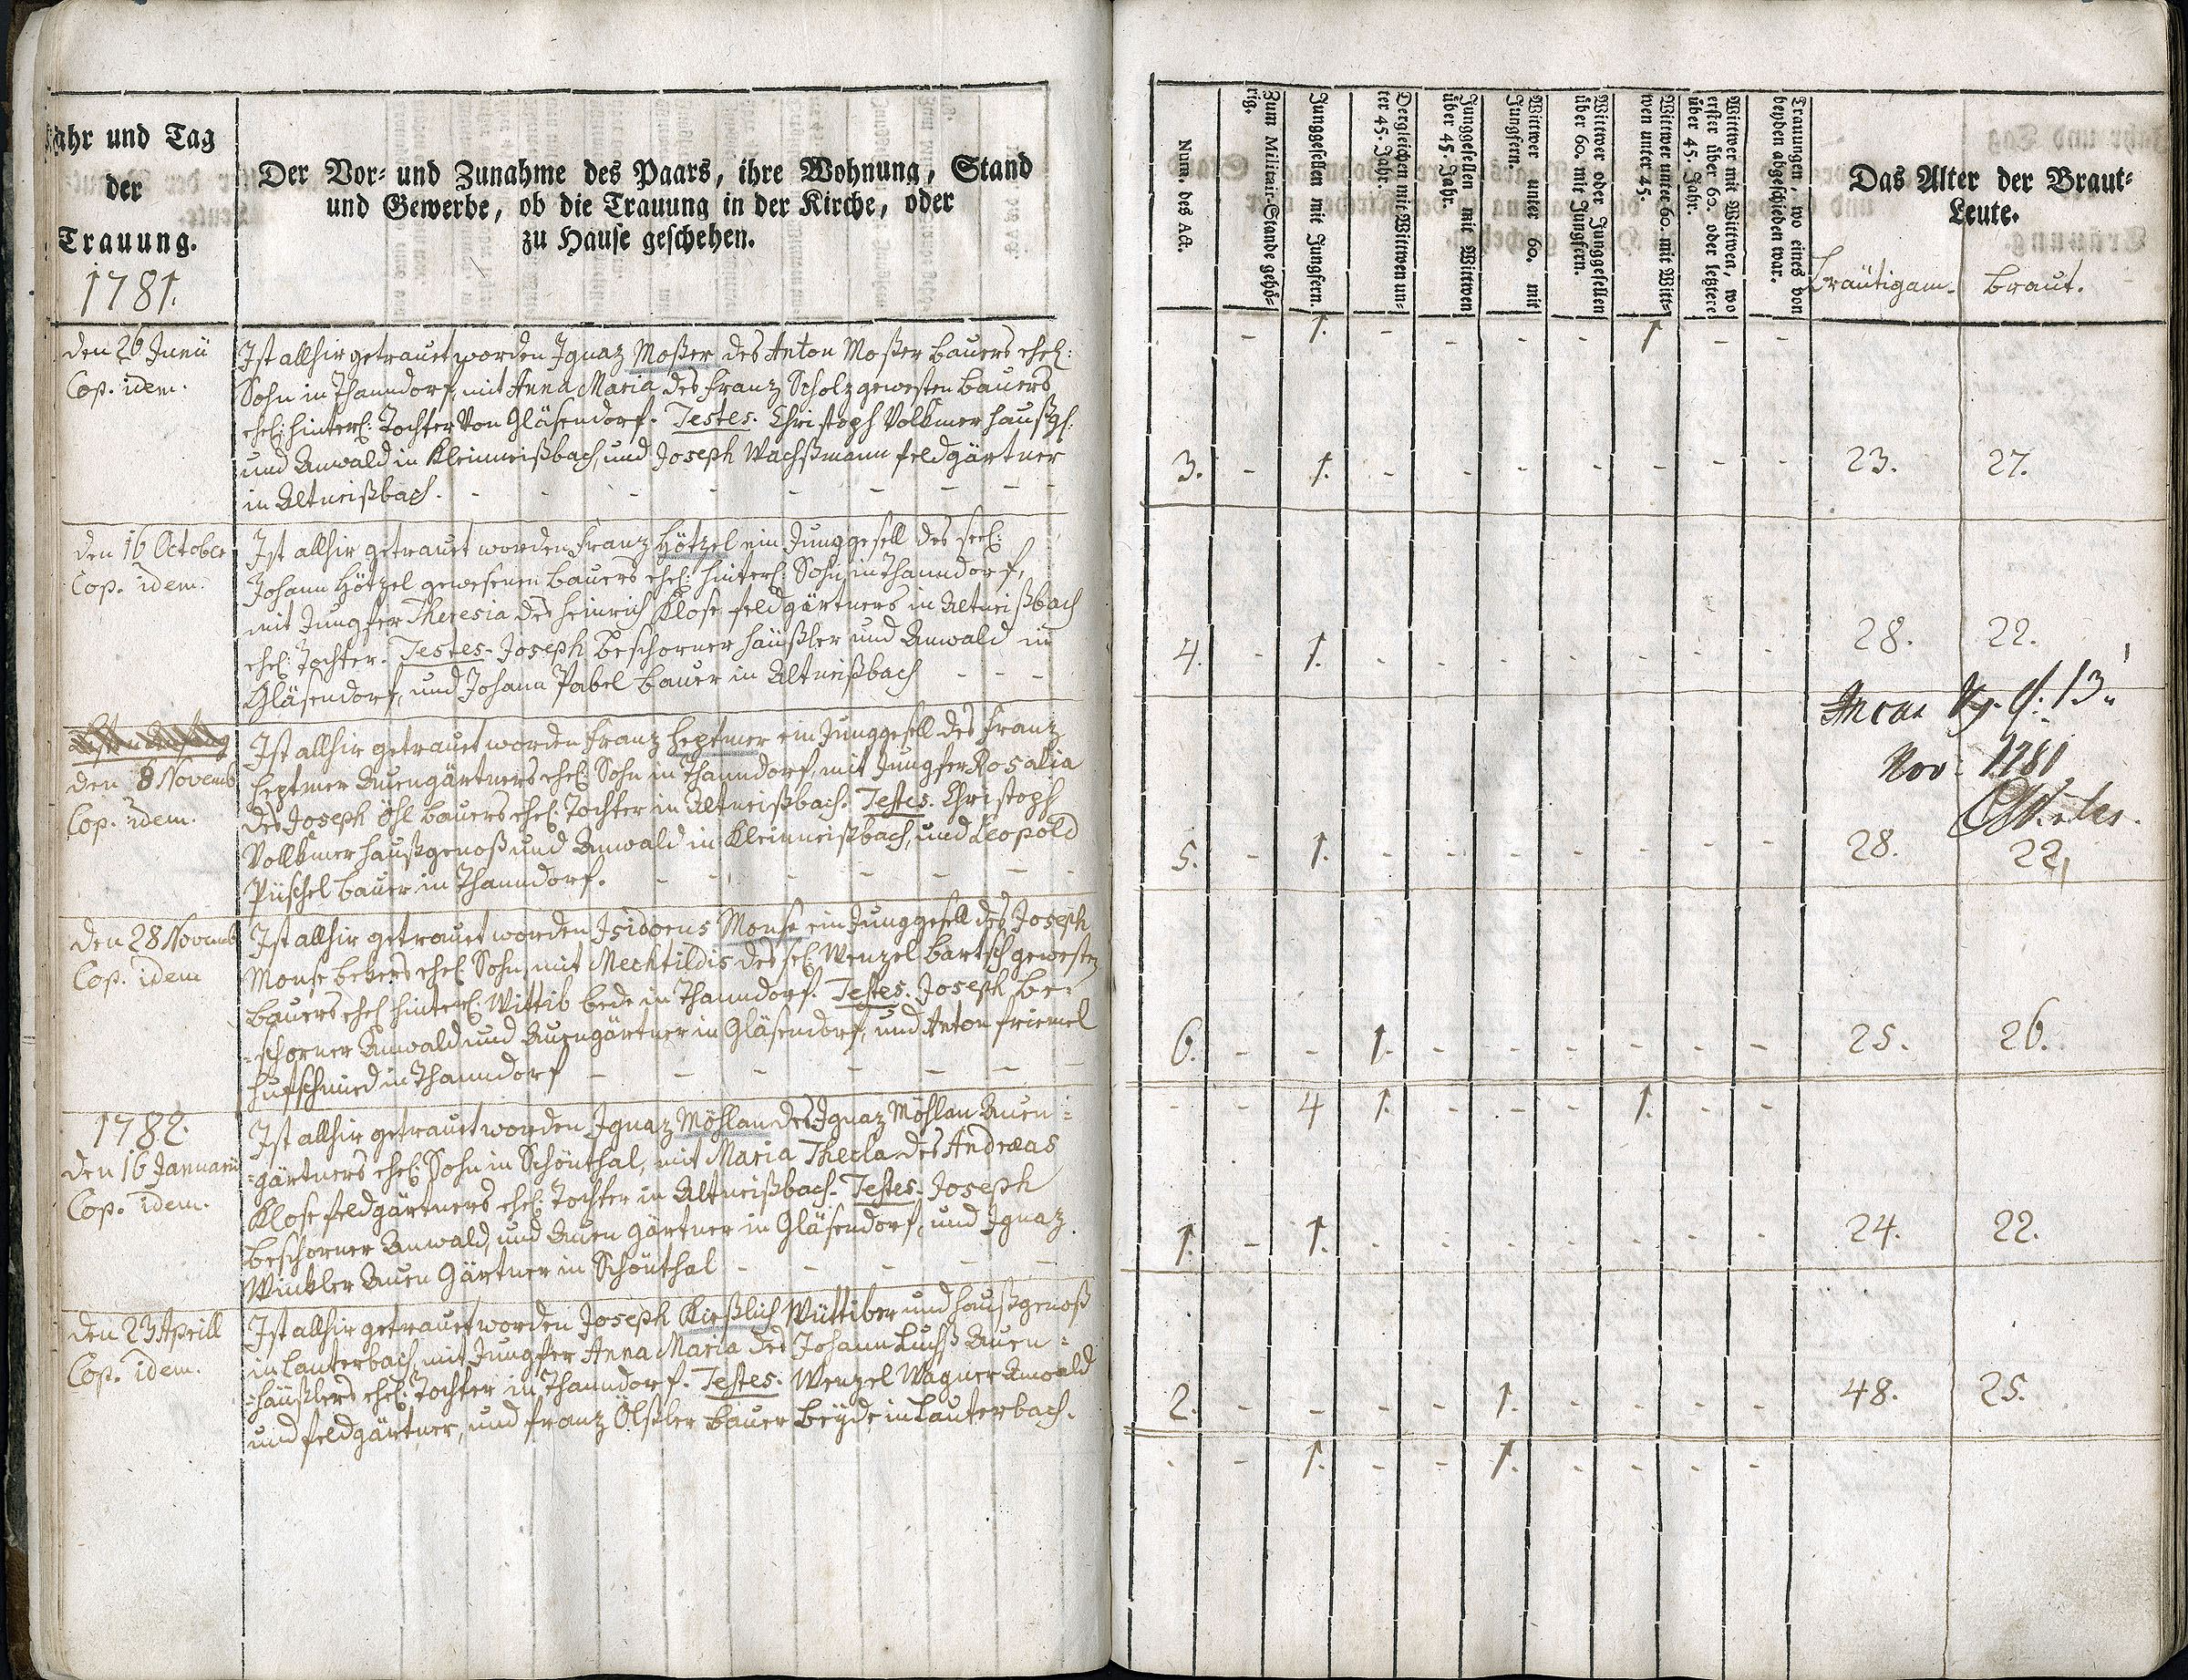 Jahr und Tag
der
Trauung.
1781.
Der Vor- und Zunahme des Paars, ihre Wohnung, Stand
und Gewerbe, ob die Trauung in der Kirche, oder
zu Hause geschehen.
den 26 Junii
Cop. idem.
Ist allhir getrauet worden Ignaz Moßer des Anton Moßer Bauers ehel:
Sohn in Thanndorf, mit Anna Maria des Franz Scholz gewesten Bauers
ehel: hinterl: Tochter von Gläsendorf. Testes. Christoph Volkmer Haußg:
und Anwald in Kleinneißbach, und Joseph Wachßmann Feldgärtner
in Altneißbach.
den 16 October
Cop. idem.
Ist allhir getrauet worden Franz Hötzel ein Junggesell des seel:
Johann Hötzel gewesenen Bauers ehel: hinterl: Sohn, in Thanndorf,
mit Jungfer Theresia des Heinrich Klose Feldgärtners in Altneißbach
ehel: Tochter. Testes. Joseph Beschorner Häußler und Anwald in
Gläsendorf, und Johann Pabel Bauer in Altneißbach
den 8 Novemb
Cop. idem.
Ist allhir getrauet worden Franz Heptner ein Junggesell des Franz
Heptner Auengärtners ehel: Sohn in Thanndorf, mit Jungfer Rosalia
des Joseph Öhl Bauers ehel: Tochter in Altneißbach. Testes. Christoph
Vollkmer Haußgenoß und Anwald in Kleinneißbach, und Leopold
Püschel Bauer in Thanndorf.
den 28 Novemb
Cop. idem
Ist allhir getrauet worden Isidorus Monse ein Junggesell des Joseph
Monse Bekers ehel: Sohn, mit Mechtildis des sel: Wenzel Bartsch gewesten
Bauers ehel hinterl: Wittib bede in Thanndorf. Testes. Joseph Be-
-schorner Anwald und Auengärtner in Gläsendorf, und Anton Friemel
Hufschmied in Thanndorf
1782.
den 16 Januarii
Cop. idem.
Ist allhir getrauet worden Ignaz Möhlan des Ignaz Möhlan Auen=
=gärtners ehel: Sohn in Schönthal, mit Maria Thecla des Andreas
Klose Feldgärtners ehel: Tochter in Altneißbach. Testes. Joseph
Beschorner Anwald, und Auen Gärtner in Gläsendorf, und Ignaz
Winkler Auen Gärtner in Schönthal
den 23 Aprill
Cop. idem.
Ist allhir getrauet worden Joseph Kießlich Wüttiber und Haußgenoß
in Lauterbach, mit Jungfer Anna Maria des Johann Luchß Auen=
=häußlers ehel: Tochter in Thanndorf. Testes. Wenzel Wagner Anwald
und Feldgärtner, und Franz Ölßler Bauer beyde in Lauterbach.
Num. des Act.
Zum Militair-Stande gehö-
rig.
Junggesellen mit Jungfern.
Dergleichen mit Wittwen un-
ter 45. Jahr.
Junggesellen mit Wittwen
über 45. Jahr.
Wittwer unter 60. mit
Jungfern.
Wittwer oder Junggesellen
über 60. mit Jungfern.
Wittwer unter 60. mit Witt-
wen unter 45.
Wittwer mit Wittwen, wo
erster über 60. oder letztere
über 45. Jahr.
Trauungen, wo eines von
beyden abgeschieden war.
Das Alter der Braut-
Leute.
Bräutigam. Braut.
- 1. - - - - 1 - -
3. - 1. - - - - - - - 23. 27.
4. - 1. - - - - - - - 28. 22.
Nov: 1781
5. - 1. - - - - - - - 28. 22,
6. - - 1. - - - - - - 25. 26.
- - 4 1. - - - 1. - -
1. - 1. - - - - - - - 24. 22.
2. - - - - 1. - - - - 48. 25.
- - 1. - - 1. - - - -